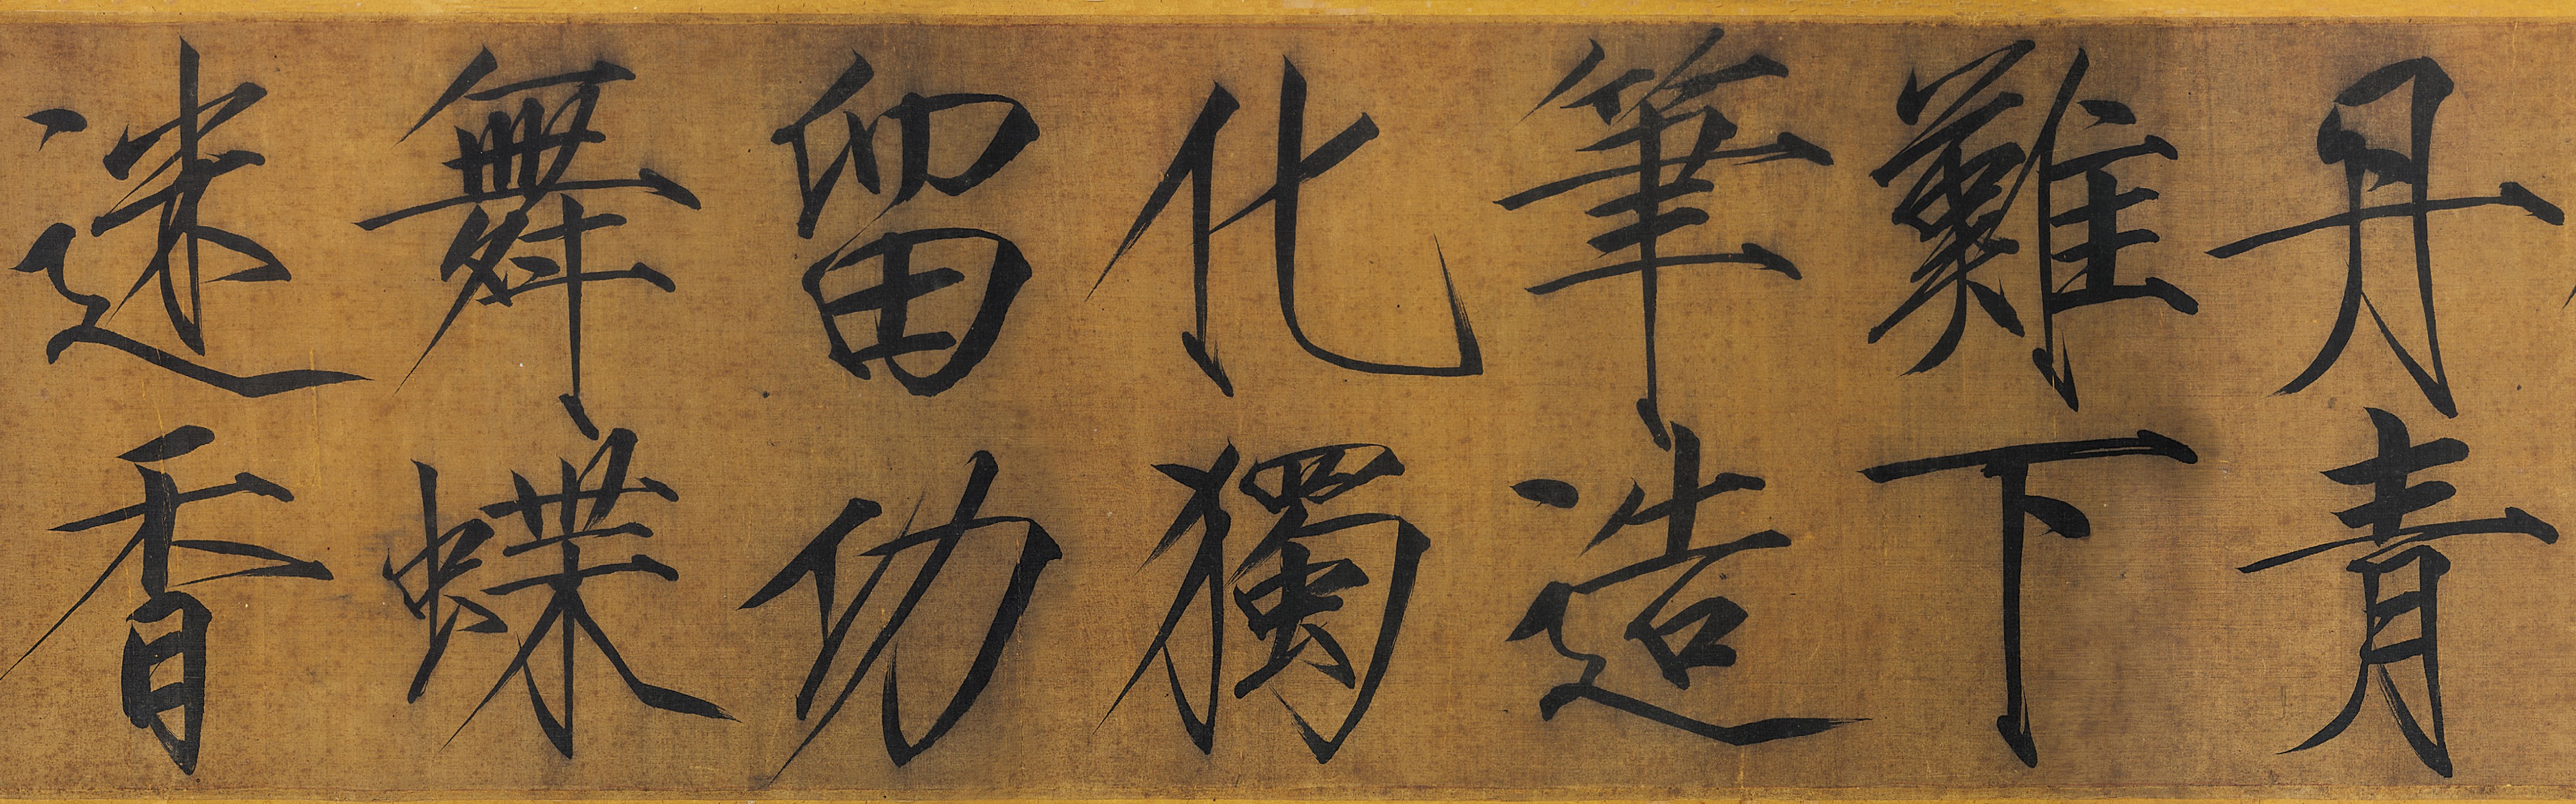 丹青
難下
筆造
化獨
留功
舞蝶
迷香